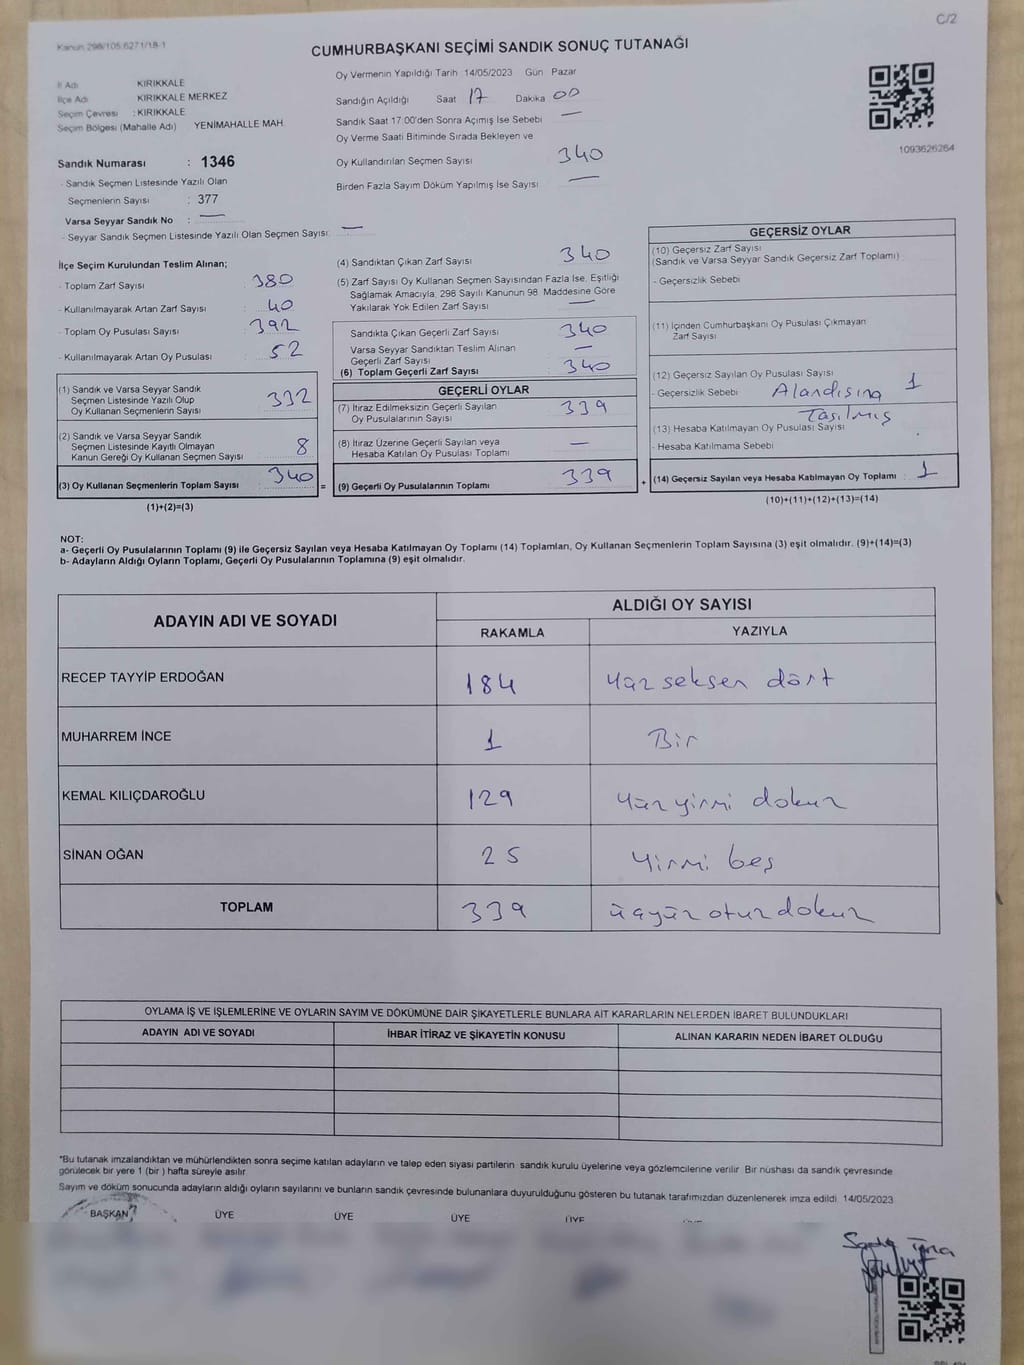 C/2
Kanun 298/105.6271/18-1
CUMHURBAŞKANI SEÇİMİ SANDIK SONUÇ TUTANAĞI
İl Adı KIRIKKALE
İlçe Adı KIRIKKALE MERKEZ
Seçim Çevresi : KIRIKKALE
Seçim Bölgesi (Mahalle Adı) YENİMAHALLE MAH.
Sandık Numarası : 1346
- Sandık Seçmen Listesinde Yazılı Olan
Seçmenlerin Sayısı : 377
Varsa Seyyar Sandık No : —
- Seyyar Sandık Seçmen Listesinde Yazılı Olan Seçmen Sayısı: —
Oy Vermenin Yapıldığı Tarih 14/05/2023 Gün Pazar
Sandığın Açıldığı Saat 17 Dakika 00
Sandık Saat 17:00'den Sonra Açımış İse Sebebi —
Oy Verme Saati Bitiminde Sırada Bekleyen ve
Oy Kullandırılan Seçmen Sayısı 340
Birden Fazla Sayım Döküm Yapılmış İse Sayısı —
1093626264
İlçe Seçim Kurulundan Teslim Alınan;
- Toplam Zarf Sayısı : 380
- Kullanılmayarak Artan Zarf Sayısı : 40
- Toplam Oy Pusulası Sayısı : 392
- Kullanılmayarak Artan Oy Pusulası : 52
(1) Sandık ve Varsa Seyyar Sandık
Seçmen Listesinde Yazılı Olup
Oy Kullanan Seçmenlerin Sayısı 332
(2) Sandık ve Varsa Seyyar Sandık
Seçmen Listesinde Kayıtlı Olmayan
Kanun Gereği Oy Kullanan Seçmen Sayısı 8
(3) Oy Kullanan Seçmenlerin Toplam Sayısı : 340 =
(1)+(2)=(3)
(4) Sandıktan Çıkan Zarf Sayısı 340
(5) Zarf Sayısı Oy Kullanan Seçmen Sayısından Fazla İse, Eşitliği
Sağlamak Amacıyla, 298 Sayılı Kanunun 98. Maddesine Göre
Yakılarak Yok Edilen Zarf Sayısı —
Sandıkta Çıkan Geçerli Zarf Sayısı 340
Varsa Seyyar Sandıktan Teslim Alınan
Geçerli Zarf Sayısı —
(6) Toplam Geçerli Zarf Sayısı 340
GEÇERLİ OYLAR
(7) İtiraz Edilmeksizin Geçerli Sayılan
Oy Pusulalarının Sayısı 339
(8) İtiraz Üzerine Geçerli Sayılan veya
Hesaba Katılan Oy Pusulası Toplamı —
(9) Geçerli Oy Pusulalarının Toplamı 339 +
GEÇERSİZ OYLAR
(10) Geçersiz Zarf Sayısı
(Sandık ve Varsa Seyyar Sandık Geçersiz Zarf Toplamı)
- Geçersizlik Sebebi
(11) İçinden Cumhurbaşkanı Oy Pusulası Çıkmayan
Zarf Sayısı
(12) Geçersiz Sayılan Oy Pusulası Sayısı 1
- Geçersizlik Sebebi Alandışına
Taşılmış
(13) Hesaba Katılmayan Oy Pusulası Sayısı
- Hesaba Katılmama Sebebi
(14) Geçersiz Sayılan veya Hesaba Katılmayan Oy Toplamı : 1
(10)+(11)+(12)+(13)=(14)
NOT:
a- Geçerli Oy Pusulalarının Toplamı (9) ile Geçersiz Sayılan veya Hesaba Katılmayan Oy Toplamı (14) Toplamları, Oy Kullanan Seçmenlerin Toplam Sayısına (3) eşit olmalıdır. (9)+(14)=(3)
b- Adayların Aldığı Oyların Toplamı, Geçerli Oy Pusulalarının Toplamına (9) eşit olmalıdır.
ADAYIN ADI VE SOYADI ALDIĞI OY SAYISI
RAKAMLA YAZIYLA
RECEP TAYYİP ERDOĞAN 184 Yüz seksen dört
MUHARREM İNCE 1 Bir
KEMAL KILIÇDAROĞLU 129 Yüz yirmi dokuz
SİNAN OĞAN 25 Yirmi beş
TOPLAM 339 üçyüz otuz dokuz
OYLAMA İŞ VE İŞLEMLERİNE VE OYLARIN SAYIM VE DÖKÜMÜNE DAİR ŞİKAYETLERLE BUNLARA AİT KARARLARIN NELERDEN İBARET BULUNDUKLARI
ADAYIN ADI VE SOYADI İHBAR İTİRAZ VE ŞİKAYETİN KONUSU ALINAN KARARIN NEDEN İBARET OLDUĞU
*Bu tutanak imzalandıktan ve mühürlendikten sonra seçime katılan adayların ve talep eden siyasi partilerin sandık kurulu üyelerine veya gözlemcilerine verilir. Bir nüshası da sandık çevresinde
görülecek bir yere 1 (bir) hafta süreyle asılır.
Sayım ve döküm sonucunda adayların aldığı oyların sayılarını ve bunların sandık çevresinde bulunanlara duyurulduğunu gösteren bu tutanak tarafımızdan düzenlenerek imza edildi 14/05/2023
BAŞKAN ÜYE ÜYE ÜYE ÜYE